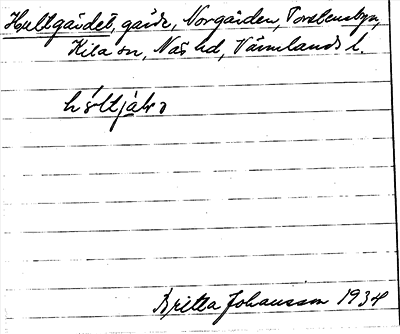 Hultgärdet, gärde, Norgården, Torstensbyn,
Kila sn, Näs hd, Värmlands l.
Britta Johansson 1934